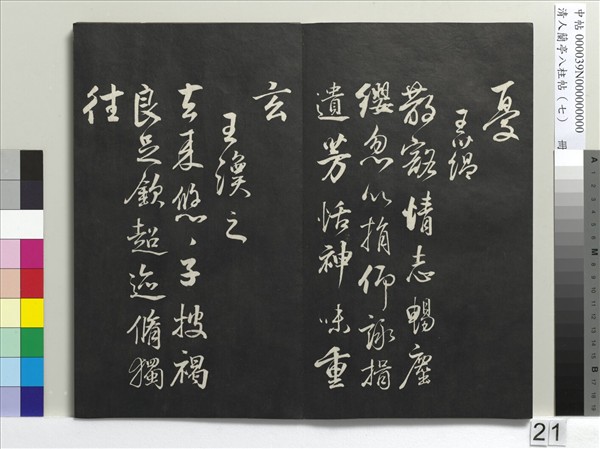 中帖 000039N000000000
清人蘭亭八柱帖(七) 冊
憂
王蘊
散豁情志暢塵
纓忽以捐仰詠揖
遺芳恬神味重
玄
王渙之
去來悠々子披褐
良足欽超迹脩獨
往
21